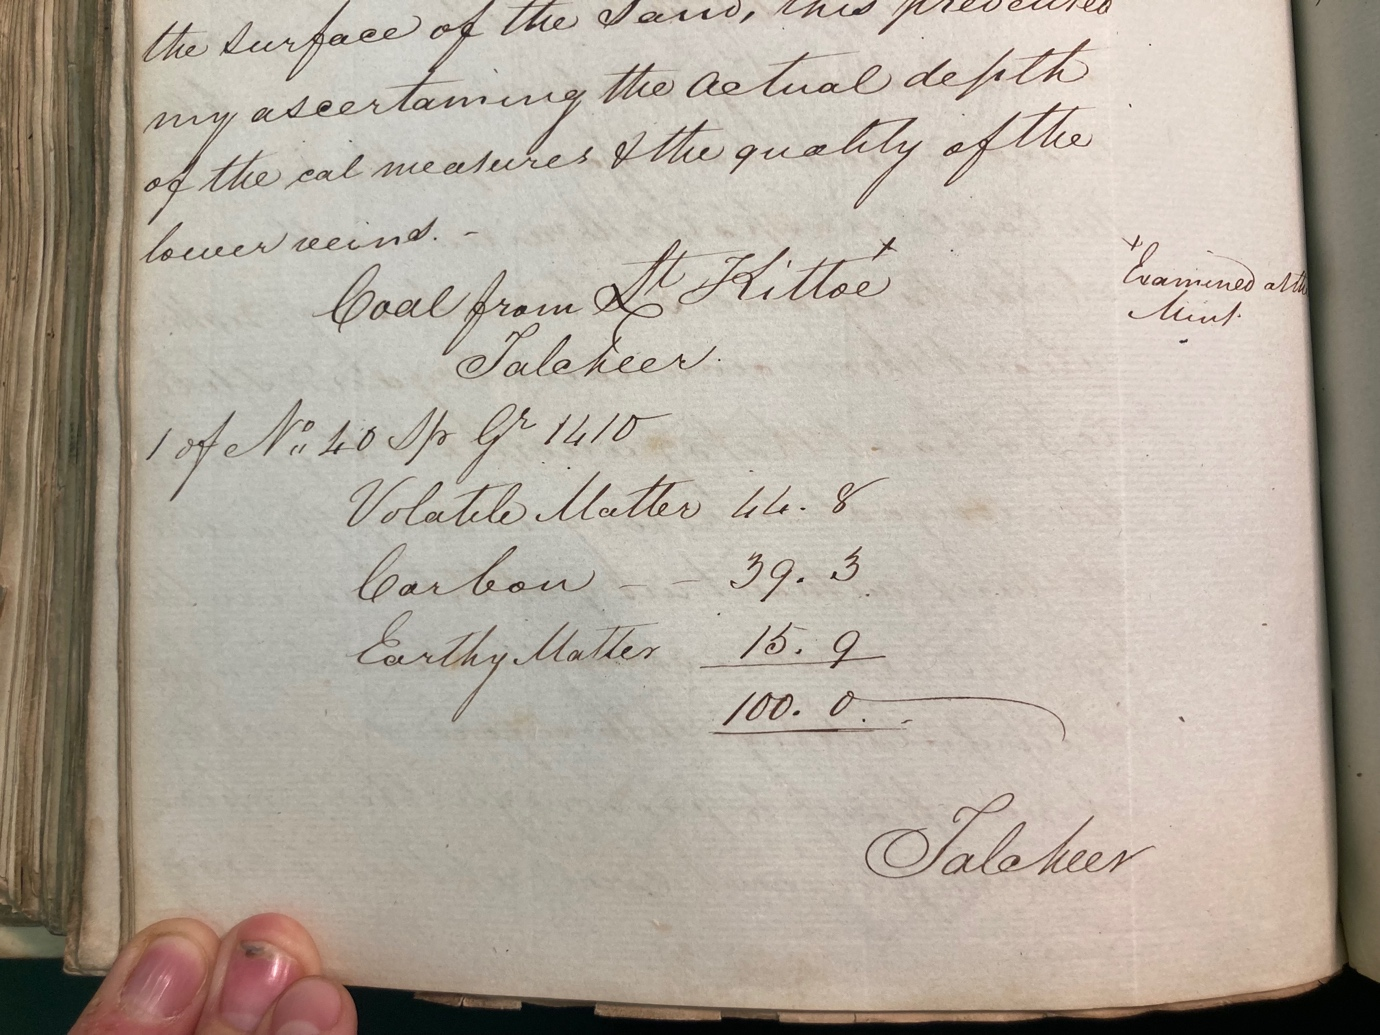 the surface of the Sand, this prevented
my ascertaining the actual depth
of the cal measures & the quality of the
lower veins. -
Coal from Lt Kittoe +
+ Examined at the
Mint.
Talcheer.
1 of No 40 Sp Gr 1410
Volatile Matter 44. 8
Carbon - - 39. 3
Earthy Matter 15. 9
100. 0.
Talcheer